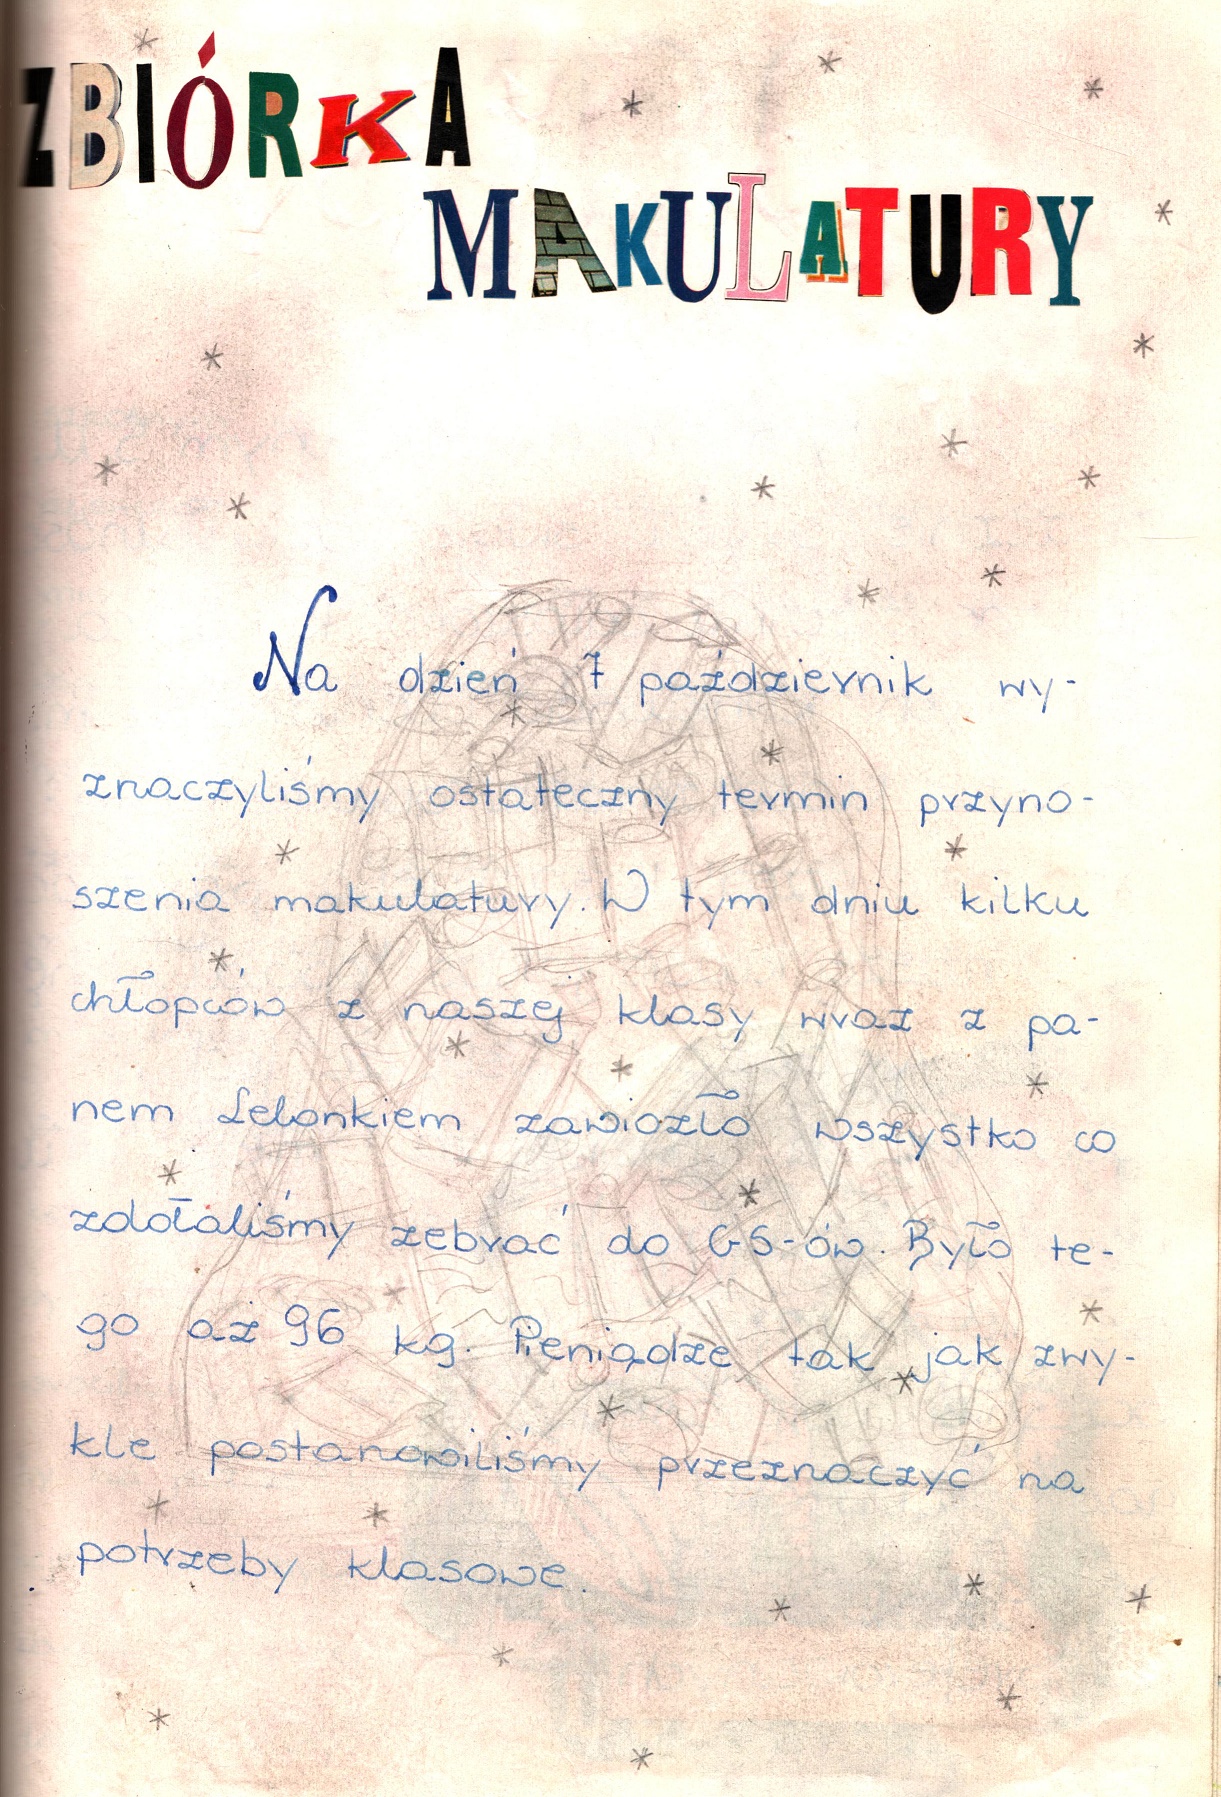 ZBIÓRKA
MAKULATURY
Na dzień 7 październik wy-
znaczyliśmy ostateczny termin przyno-
szenia makulatury. W tym dniu kilku
chłopców z naszej klasy wraz z pa-
nem Lelonkiem zawiozło wszystko co
zdołaliśmy zebrać do GS-ów. Było te-
go aż 96 kg. Pieniądze tak jak zwy-
kle postanowiliśmy przeznaczyć na
potrzeby klasowe.